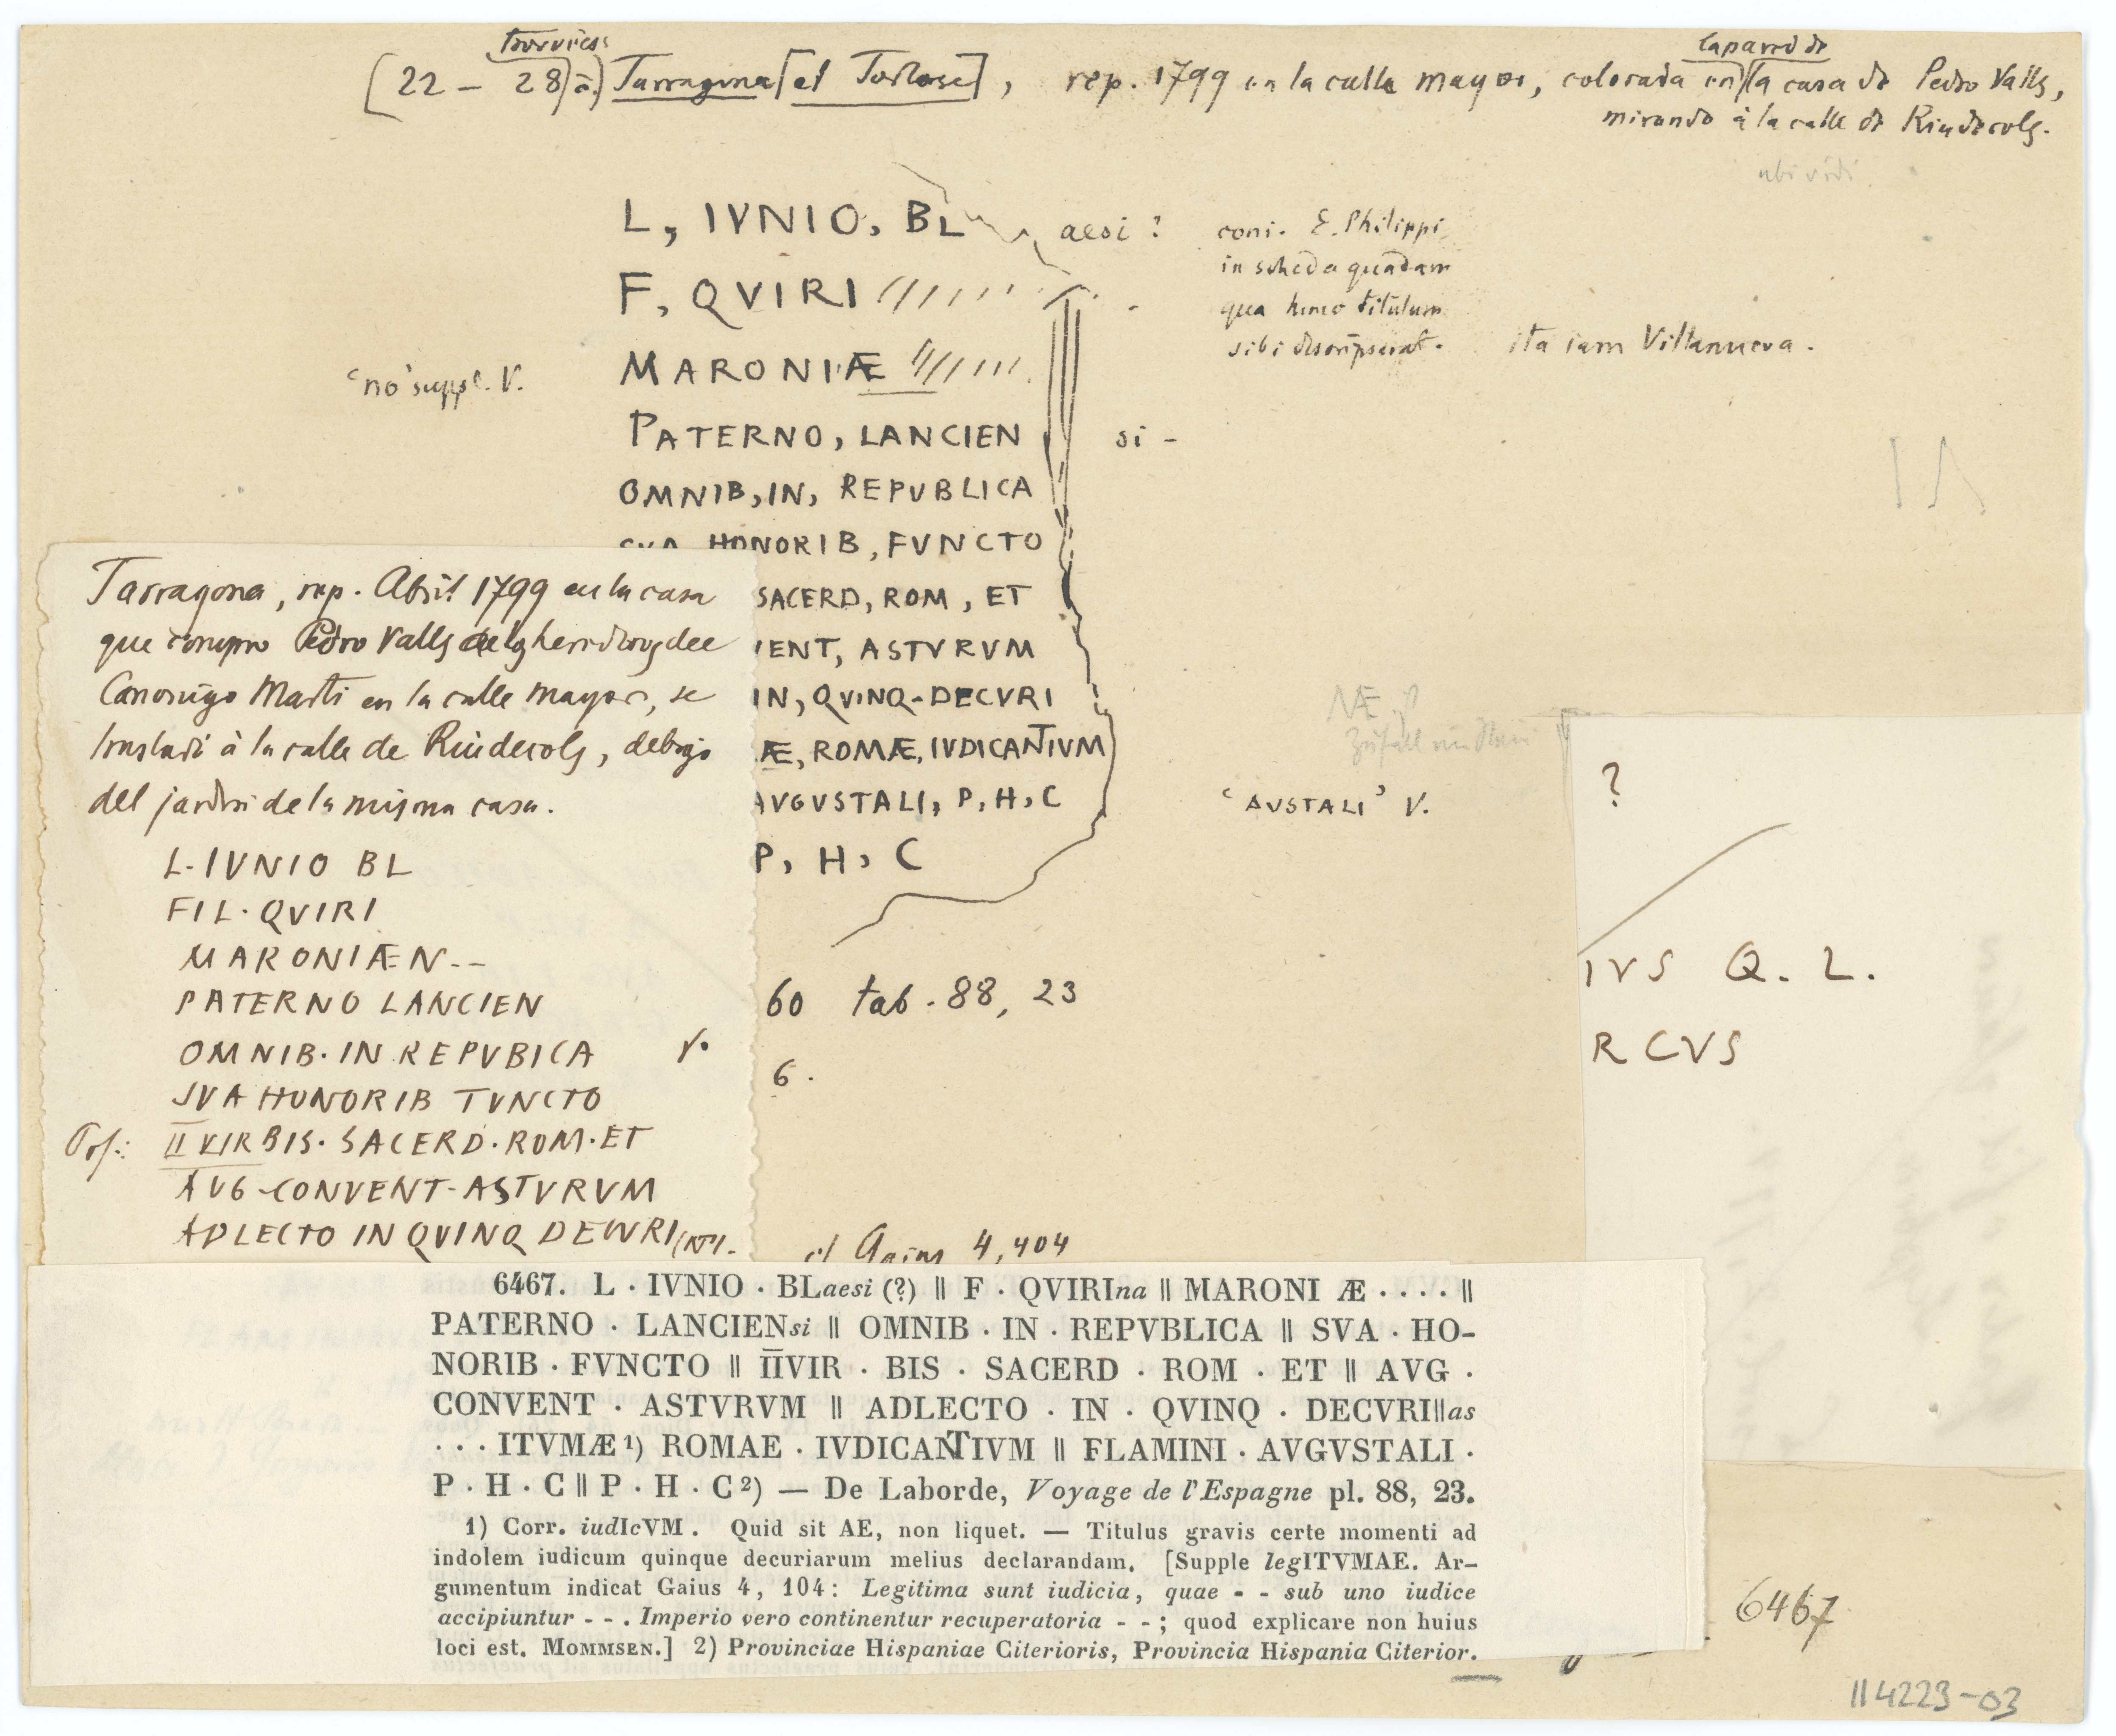 Torruies
(22 – 28) a) Tarragona [et Tortose], rep. 1799 en la calle mayor, colorada en la casa de Pedro Valls,
la pared de
mirando à la calle de Riudecols.
ubi vidi
L, IVNIO, BL aesi ?
F, QVIRI
MARONIÆ
'no' suppl. V.
PATERNO, LANCIEN si -
OMNIB, IN, REPVBLICA
SVA HONORIB, FVNCTO
SACERD, ROM, ET
IENT, ASTVRVM
IN, QVINQ-DECVRI
Æ, ROMÆ, IVDICANTIVM
AVGVSTALI, P, H, C
P, H, C
coni. E. Philippi
in scheda quadam
qua hunc titulum
sibi descripserat.
ita iam Villanueva.
NÆ
'AVSTALI' V.
60 tab. 88, 23
6.
cf Gaius 4, 404
Tarragona, rep. Abril 1799 en la casa
que compro Pedro Valls
Canonigo Marti en la calle mayor, se
trasladi à la calle de Riudecols, debajo
del jardin de la misma casa.
L. IVNIO BL
FIL. QVIRI
MARONIÆ N--
PATERNO LANCIEN
OMNIB. IN REPVBICA V.
SVA HONORIB TVNCTO
II VIR BIS. SACERD. ROM. ET
AVG-CONVENT-ASTVRVM
ADLECTO IN QVINQ DECVRI
?
IVS Q. L.
RCVS
6467. L · IVNIO · BLaesi (?) || F · QVIRIna || MARONI Æ · · · · ||
PATERNO · LANCIENsi || OMNIB · IN · REPVBLICA || SVA · HO-
NORIB · FVNCTO || ĪĪVIR · BIS · SACERD · ROM · ET || AVG ·
CONVENT · ASTVRVM || ADLECTO · IN · QVINQ · DECVRI||as
· · · ITVMÆ 1) ROMAE · IVDICANTIVM || FLAMINI · AVGVSTALI ·
P · H · C || P · H · C 2) — De Laborde, Voyage de l'Espagne pl. 88, 23.
1) Corr. iudIcVM . Quid sit AE, non liquet. — Titulus gravis certe momenti ad
indolem iudicum quinque decuriarum melius declarandam. [Supple legITVMAE. Ar-
gumentum indicat Gaius 4, 104: Legitima sunt iudicia, quae - - sub uno iudice
accipiuntur - - . Imperio vero continentur recuperatoria - - ; quod explicare non huius
loci est. MOMMSEN.] 2) Provinciae Hispaniae Citerioris, Provincia Hispania Citerior.
6467
II 4223-03